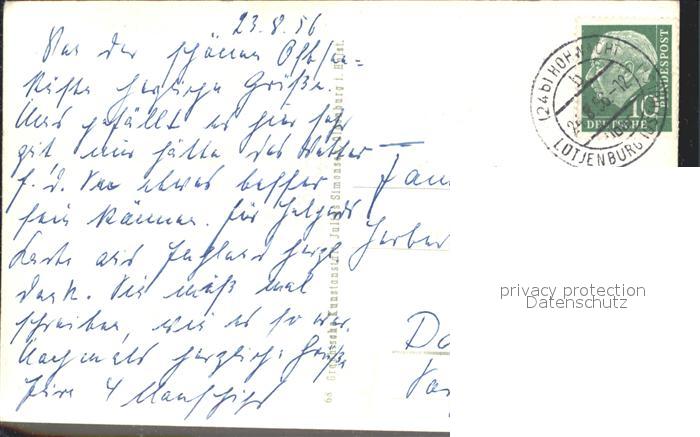 23.8.56
Von der schönen Ostsee-
küste herzliche Grüße.
Uns gefällt es hier sehr
gut nur hätte das Wetter
f. d. See etwas besser
sein können. Für Helga's
Karte aus England herzl.
Dank. Sie muß mal
schreiben, wie es so war.
Nochmals herzliche Grüße
Ihre 4
Fam
Herber
Da
68 Graphische Kunstanstalt Julius Simonsen, Oldenburg i. Holst.
(24b) HOHWACHT
LÜTJENBURG
DEUTSCHE
BUNDESPOST
10
privacy protection
Datenschutz